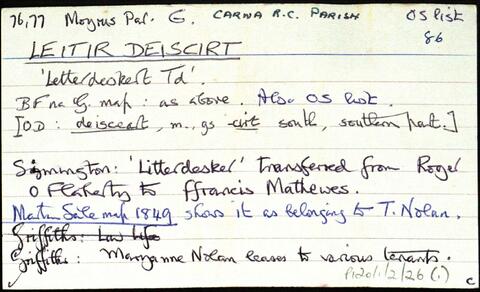 76,77 Moyrus Par. G. CARNA R.C. PARISH OS list
86
LEITIR DEISCIRT
'Letterdeskert Td'.
BF na G. map : as above. Also OS list.
[OD : deisceart, m., gs -cirt south, southern part.]
Symington: 'Litterdesker' transferred from Roger
O Flaherty to ffrancis Mathewes.
Martin Sale map 1849 shows it as belonging to T. Nolan.
Griffiths: Law Life
Griffiths: Maryanne Nolan leases to various tenants.
P120/1/2/26 (1)
C